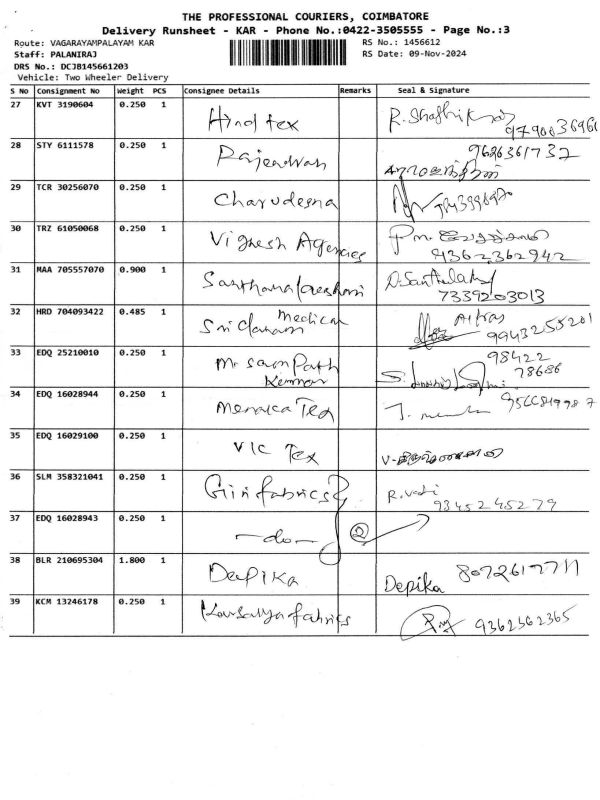 THE PROFESSIONAL COURIERS, COIMBATORE
Delivery Runsheet - KAR - Phone No.:0422-3505555 - Page No.:3
Route: VAGARAYAMPALAYAM KAR RS No.: 1456612
Staff: PALANIRAJ RS Date: 09-Nov-2024
DRS No.: DCJB145661203
Vehicle: Two Wheeler Delivery
S No Consignment No Weight PCS Consignee Details Remarks Seal & Signature
27 KVT 3190604 0.250 1 Hind tex
28 STY 6111578 0.250 1 Rajendran 9626361732
29 TCR 30256070 0.250 1 Charudesna
30 TRZ 61050068 0.250 1 Vignesh Agencies
9362362942
31 MAA 705557070 0.900 1
7339203013
32 HRD 704093422 0.485 1 Medical
9943255201
33 EDQ 25210010 0.250 1 Mr Sam Path 98422
78686
34 EDQ 16028944 0.250 1 Menaka Tex
35 EDQ 16029100 0.250 1 VIC Tex
36 SLM 358321041 0.250 1 Giri fabrics R.Vadi
9345245279
37 EDQ 16028943 0.250 1 -do- 2
38 BLR 210695304 1.800 1 Depika Depika
39 KCM 13246178 0.250 1 Kousalya fabrics 9362362365